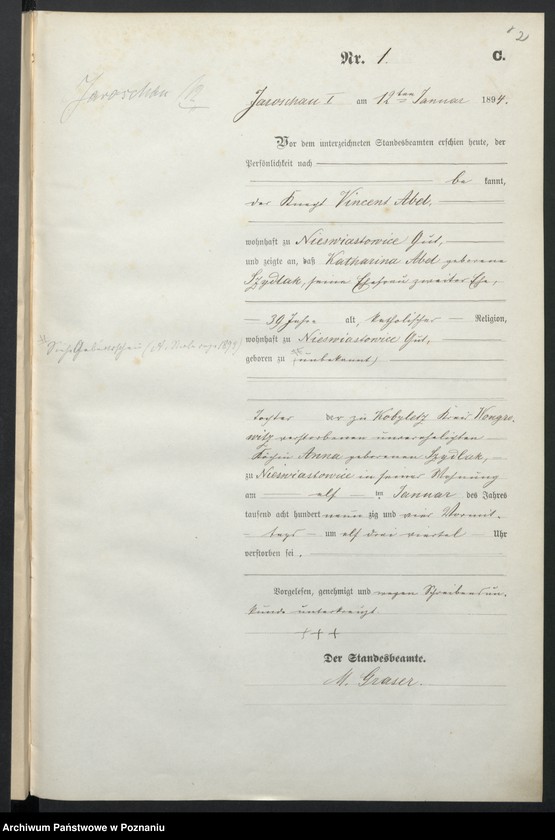 2
Nr. 1. C.
Jaroschau
Jaroschau I am 12ten Januar 1894.
Vor dem unterzeichneten Standesbeamten erschien heute, der
Persönlichkeit nach
be kannt,
der Knecht Vincent Abel.
wohnhaft zu Nieswiastowice Gut,
und zeigte an, daß Katharina Abel geborene
Szydlak, seine Ehefrau zweiter Ehe,
39 Jahre alt, katholischer Religion,
wohnhaft zu Nieswiastowice Gut,
geboren zu (unbekannt)
Tochter der zu Kobyletz Kreis Wongro-
witz verstorbenen unverehelichten
Köchin Anna geborenen Szydlak,
zu Nieswiastowice in seiner Wohnung
am elf ten Januar des Jahres
tausend acht hundert neun zig und vier Vormit-
tags um elf drei viertel Uhr
verstorben sei.
Vorgelesen, genehmigt und wegen Schreibensun-
kunde unterkreuzt
+++
Der Standesbeamte.
M. Graser.
Archiwum Państwowe w Poznaniu